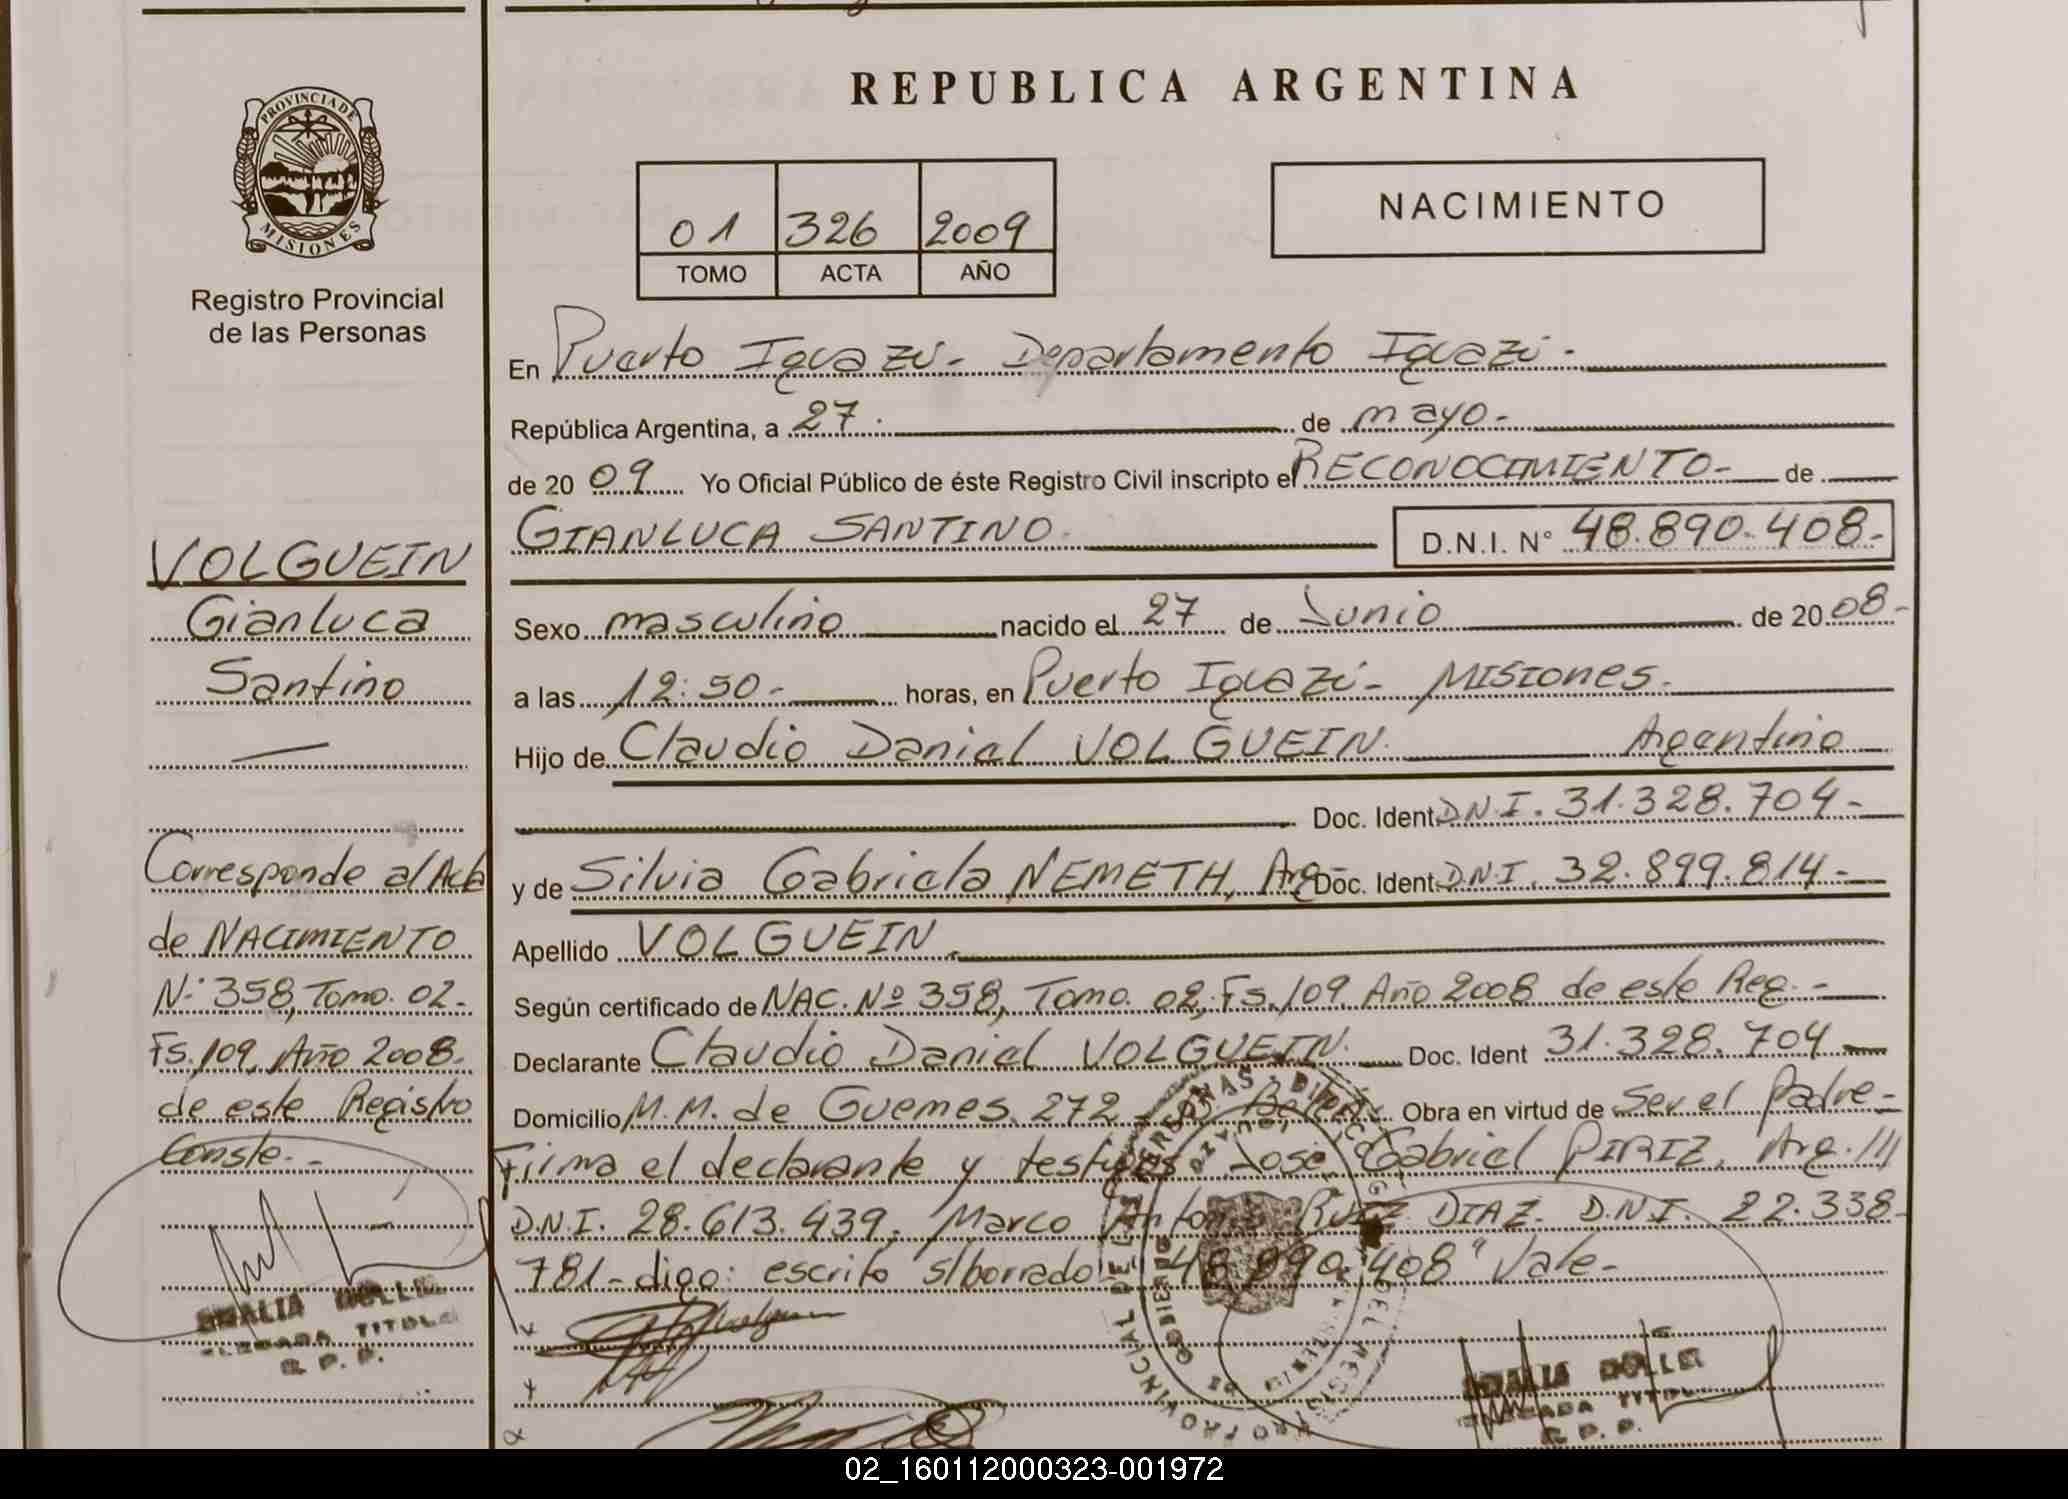 REPUBLICA ARGENTINA
PROVINCIA DE
MISIONES
Registro Provincial
de las Personas
01 326 2009
TOMO ACTA AÑO
NACIMIENTO
En Puerto Iguazú - Departamento Iguazú -
República Argentina, a 27. de mayo -
de 20 09 Yo Oficial Público de éste Registro Civil inscripto el RECONOCIMIENTO - de
GIANLUCA SANTINO. D.N.I. N° 48.890.408.-
Sexo masculino nacido el 27 de Junio de 20 08 -
a las 12:50 - horas, en Puerto Iguazú - Misiones.
Hijo de Claudio Daniel VOLGUEIN. Argentino
Doc. Ident D.N.I. 31.328.704 -
y de Silvia Gabriela NEMETH, Arg Doc. Ident D.N.I. 32.899.814 -
Apellido VOLGUEIN.
Según certificado de NAC. Nº 358, Tomo. 02, Fs. 109, Año 2008 de este Reg. -
Declarante Claudio Daniel VOLGUEIN. Doc. Ident 31.328.704
Domicilio M.M. de Guemes 272 Obra en virtud de Ser el Padre -
Firma el declarante y testigos José Gabriel PIRIZ, Arg. ///
D.N.I. 28.613.439, Marco Antonio RUIZ DIAZ. D.N.I. 22.338-
781 - digo: escrito s/borrado: "48.890.408" Vale -
VOLGUEIN
Gianluca
Santino
Corresponde al Acta
de NACIMIENTO
N° 358, Tomo. 02 -
Fs. 109, Año 2008.
de este Registro
Conste. -
02_160112000323-001972